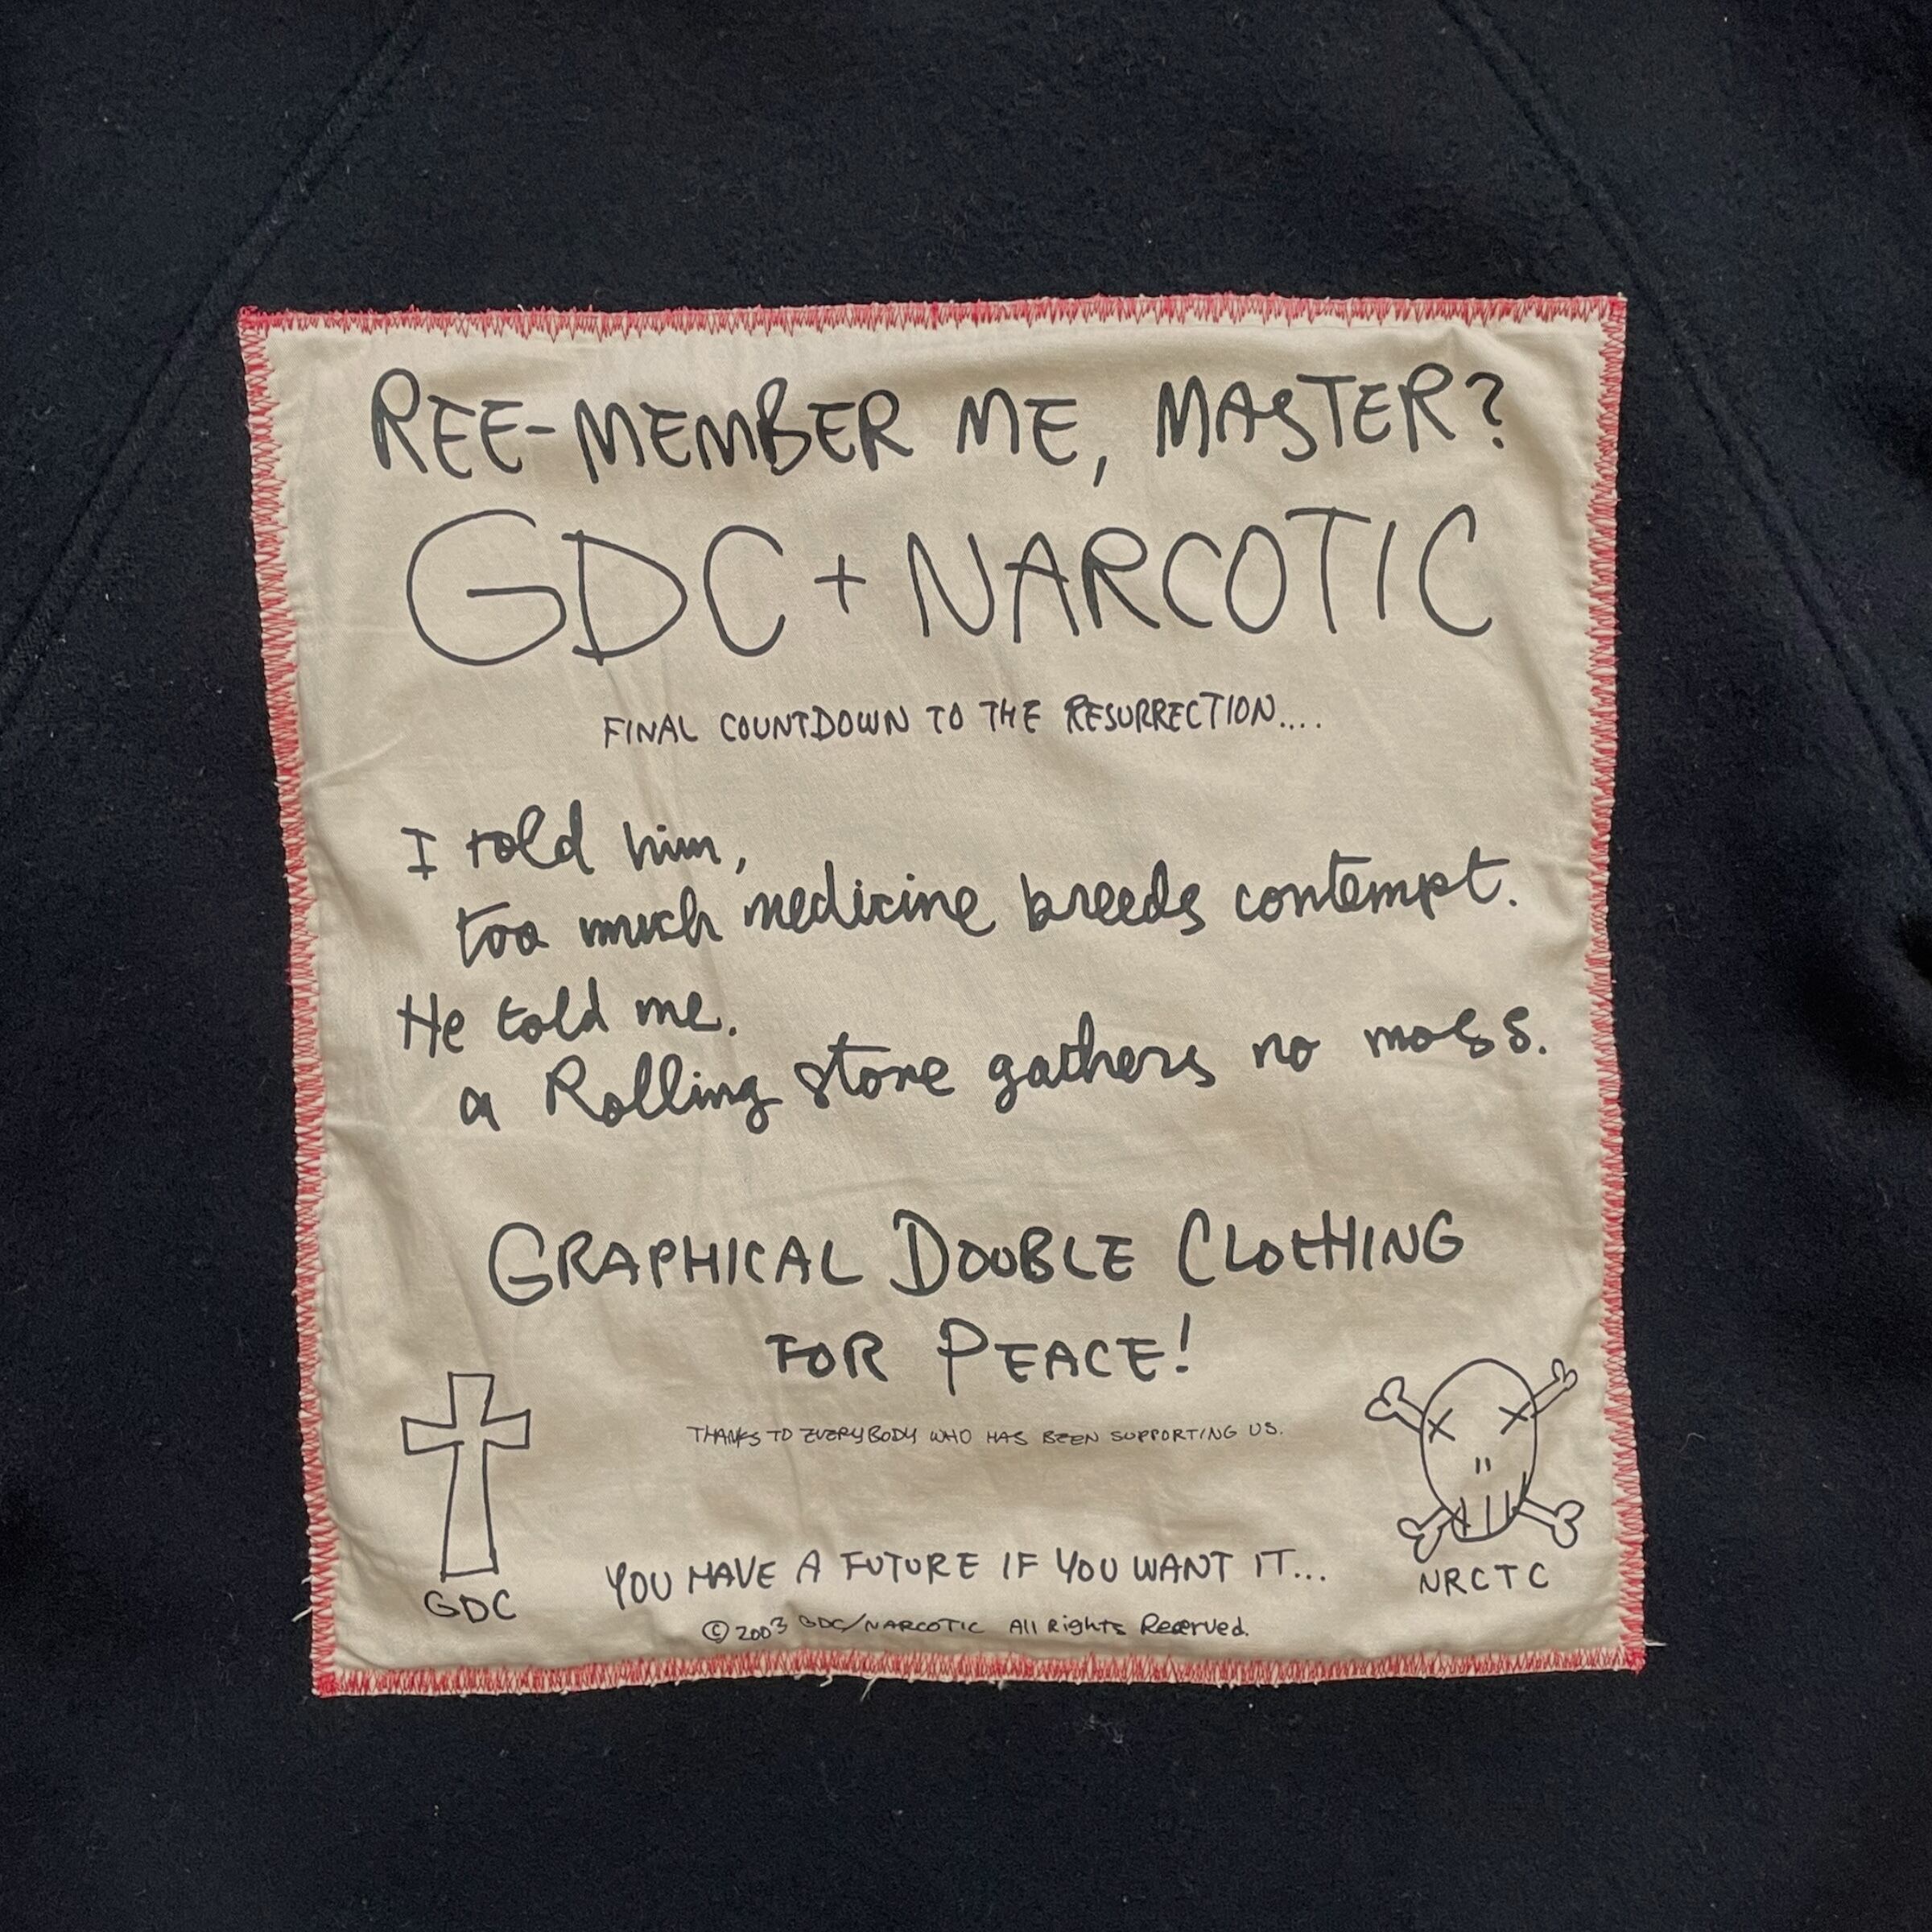 REE-MEMBER ME, MASTER?
GDC + NARCOTIC
FINAL COUNTDOWN TO THE RESURRECTION....
I told him,
too much medicine breeds contempt.
He told me.
a Rolling stone gathers no moss.
GRAPHICAL DOUBLE CLOtHING
FOR PEACE!
THANKS TO EVERYBODY WHO HAS BEEN SUPPORTING US.
YOU HAVE A FUTURE IF YOU WANT IT...
GDC
NRCTC
© 2003 GDC/NARCOTIC All Rights Reserved.